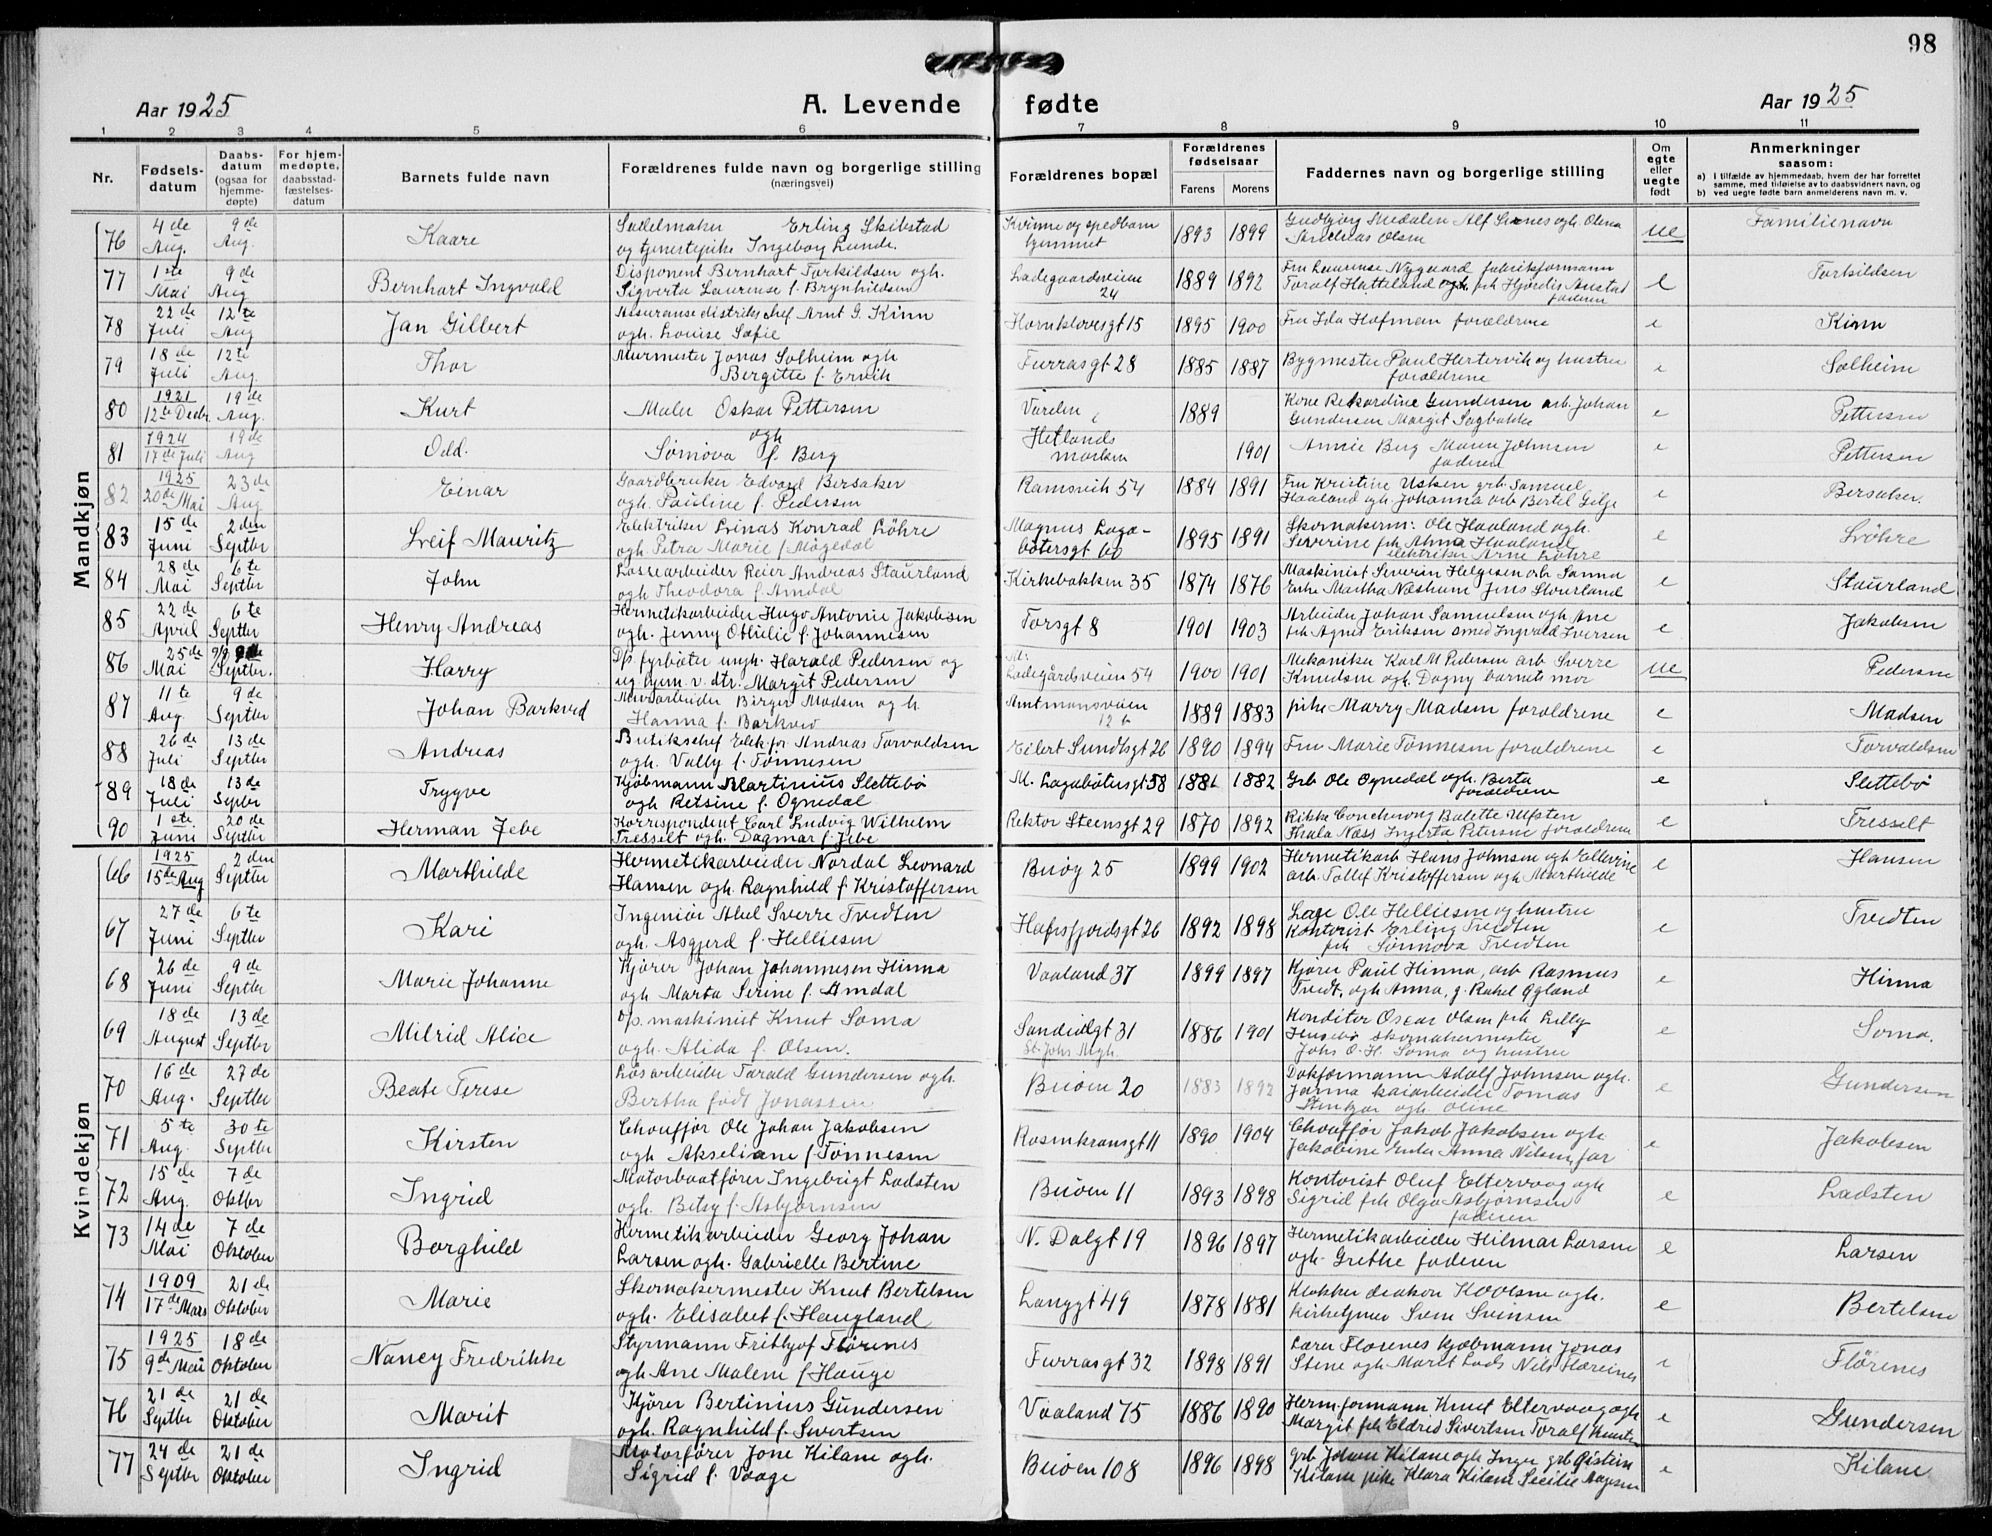 98
Aar 1925
A. Levende fødte
Aar 1925
1 2 3 4 5 6 7 8 9 10 11
Nr.
Fødsels-
datum
Daabs-
datum
(ogsaa for
hjemme-
døpte)
For hjem-
medøpte,
daabsstad-
fæstelses-
datum
Barnets fulde navn
Forældrenes fulde navn og borgerlige stilling
(næringsvei)
Forældrenes bopæl
Forældrenes
fødselsaar
Farens Morens
Faddernes navn og borgerlige stilling
Om
egte
eller
uegte
født
Anmerkninger
saasom:
a) I tilfælde av hjemmedaab, hvem der har forrettet
samme, med tilføielse av to daabsvidners navn, og
b) ved uegte fødte barn anmelderens navn m. v.
Mandkjøn
76 4de Aug. 9de Aug. Kaare Sadelmaker Erling Skibstad
og tjenestepike Ingeborg Lunde. Kvinne og spedbarn
hjemmet 1893 1899 Gudbjørg Medalen Alf ogh. Olena
Andreas Olsen ue Familienavn
77 1ste Mai 9de Aug Bernhart Ingvald Disponent Bernhart Torkildsen ogh.
Sigverta Laurense f. Brynhildsen Ladegaardsveien
24 1889 1892 Fru Laurense Nygaard fabrikformann
Toralf Hatteland ogh. pk Hjørdis Anstad
faderen e Torkildsen
78 22de Juli 12te Aug Jan Gilbert Assuranse distriktschef Arnt G. Kinn
ogh. Louise Sofie Hornklovesgt 15 1895 1900 Fru Ida Hofman forældrene e Kinn
79 18de Juli 12te Aug. Thor Murmester Jonas Solheim ogh
Bergitte f. Ervik Furrasgt 28 1885 1887 Bygmester Paul Hertervik og hustru
forældrene e Solheim
80 1921 12te Decbr. 19de Aug. Kurt Maler Oskar Pettersen Varden 1889 Kone Rikardine Gundersen arb. Johan
Gundersen Margit Sagbakke e Pettersen
81 1924 17de Juli 19de Aug Odd. ogh
Sømova f. Berg Hetlands
marken 1901 Annie Berg Maren Johnsen
faderen e Pettersen
82 1925 20de Mai 23de Aug Einar Gaardbruker Edvard Bersaker
ogh. Pauline f. Pedersen Ramsvik 54 1884 1891 Fru Kristine Usken grb. Samuel
Haaland ogh. Johanna arb Bertel Gilje e Bersaker.
83 15de Juni 2den Septbr Leif Mauritz Elektriker Linas Konrad Løhre
ogh. Petra Marie f. Møgedal Magnus Laga-
bøtersgt 60 1895 1891 Skomakerm: Ole Haaland ogh.
Severine pk Alma Haaland
elektriker Arne Løhre e Løhre
84 28de Mai 6te Septbr John Lossearbeider Reier Andreas Staurland
ogh Theodora f. Amdal Kirkebakken 35 1874 1876 Maskinist Severin Helgesen arb Sanna
Enke Martha Næsheim Jens Staurland e Staurland
85 22de April 6te Septbr Henry Andreas Hermetikarbeider Hugo Antonie Jakobsen
ogh. Jenny Othilie f. Johannesen Torsgt 8 1901 1903 Arbeider Johan Samuelsen ogh Ane
pk Agnes Eriksen smed Ingvald Iversen e Jakobsen
86 25de Mai 9/9 Septbr. Harry D/s fyrbøter ungk. Harald Pedersen og
ug. hjem. v. dtr. Margit Pedersen Ladegårdsveien 54 1900 1901 Mekaniker Karl M Pedersen arb Sverre
Knudsen ogh. Dagny barnets mor ue Pedersen
87 11te Aug. 9de Septbr Johan Barkved Murarbeider Birger Madsen og h.
Hanna f. Barkved Amtmansveien
12b 1889 1883 pike Marry Madsen forældrene e Madsen
88 26de Juli 13de Septbr Andreas Butikschef Elek.for Andreas Torvaldsen
ogh. Vally f. Tønnesen Eilert Sundtsgt 26 1890 1894 Fru Marie Tønnesen forældrene e Torvaldsen
89 18de Juli 13de Septbr Trygve Kjøbmann Martinius Slettebø
ogh Retsine f. Ognedal M. Lagabøtersgt 58 1881 1882 Grb Ole Ognedal ogh. Berta
forældrene e Slettebø
90 1ste Juni 20de Septbr Herman Jebe Korrespondent Carl Ludvig Wilhelm
Tresselt ogh. Dagmar f. Jebe Rektor Steensgt 29 1870 1892 Rikke Boletta Ulfsten
Thala Næss Ingerta Petersen forældrene e Tresselt
Kvindekjøn
66 1925 15de Aug 2den Septbr Marthilde Hermetikarbeider Nordal Leonard
Hansen ogh. Ragnhild f. Kristoffersen Buøy 25 1899 1902 Hermetikarb Hans Johnsen ogh Ellevine
arb. Tollef Kristoffersen ogh Marthilde e Hansen
67 27de Juni 6te Septbr Kari Ingeniør Abel Sverre Tvedten
ogh. Asgjerd f. Helliesen Hafrsfjordsgt 26 1892 1898 Læge Ole Helliesen og hustru
Kontorist Erling Tvedten
pk Sømova Tvedten e Tvedten
68 26de Juni 9de Septbr Marie Johanne Kjører Johan Johannesen Hinna
ogh Marta Serine f. Amdal Vaaland 37 1899 1897 Kjører Paul Hinna, arb Rasmus
Tvedt, ogh Anna, g. Rakel Øgland e Hinna
69 18de August 13de Septbr Milrid Alice D/s. maskinist Knut Soma
ogh. Alida f. Olsen. Sandvigt 31
St. Johs Mgh. 1886 1901 Konditor Oscar Olsen pk Lilly
Husebø skomakermester
Johs O. H. Soma og hustru e Soma.
70 16de Aug. 27de Septbr Beate Terese Løsarbeider Torald Gundersen ogh.
Bertha født Jonassen Buøen 20 1883 1892 Dokformann Adolf Johnsen ogh.
Jonna kaiarbeider Tomas
ogh. Oline e Gundersen
71 5te Aug. 30te Septbr Kirsten Chauffør Ole Johan Jakobsen
ogh Akseliane f. Tønnesen Rosenkransgt 11 1890 1904 Chauffør Jakob Jakobsen ogh
Jakobine Enke Anna Nilsen, far e Jakobsen
72 15de Aug. 7de Oktbr Ingrid Motorbaatfører Ingebrigt Ladsten
ogh. Betsy f. Asbjørnsen Buøen 11 1893 1898 Kontorist Oluf Eltervaag ogh
Sigrid pk Olga Asbjørnsen
faderen e Ladsten
73 14de Mai 7de Oktober Borghild Hermetikarbeider Georg Johan
Larsen ogh. Gabrielle Bertine N. Dalgt 19 1896 1897 Hermetikarbeider Hilmar Larsen
ogh. Grethe faderen e Larsen
74 1909 17de Mars 21de Oktober Marie Skomakermester Knut Bertelsen
ogh. Elisabet f. Haugland Langgt 49 1878 1881 Klokker deakon K Olsen ogh.
kirketjener Sven Svensen e Bertelsen
75 1925 9de Mai 18de Oktober Nancy Fredrikke Styrmann Frithjof Flørenes
ogh Ane Malene f. Hauge Furrasgt 32 1898 1891 Lærer Flørenes kjøbmann Jonas
Stene ogh. Marit Lads Nils Flørenes e Flørenes
76 21de Septbr 21de Oktober Marit Kjører Bertinius Gundersen
ogh. Ragnhild f. Sivertsen Vaaland 75 1886 1890 Hermformann Knut Eltervaag ogh
Margit pk Eldrid Sivertsen Toralf e Gundersen
77 24de Septbr 21de Oktober Ingrid Motorfører Jone Kilane ogh.
Sigrid f. Vaage Buøen 108 1896 1898 grb. Johan Kilane ogh Inger grb Øistein
Kilane pike Klara Kilane Secilie Aagesen e Kilane